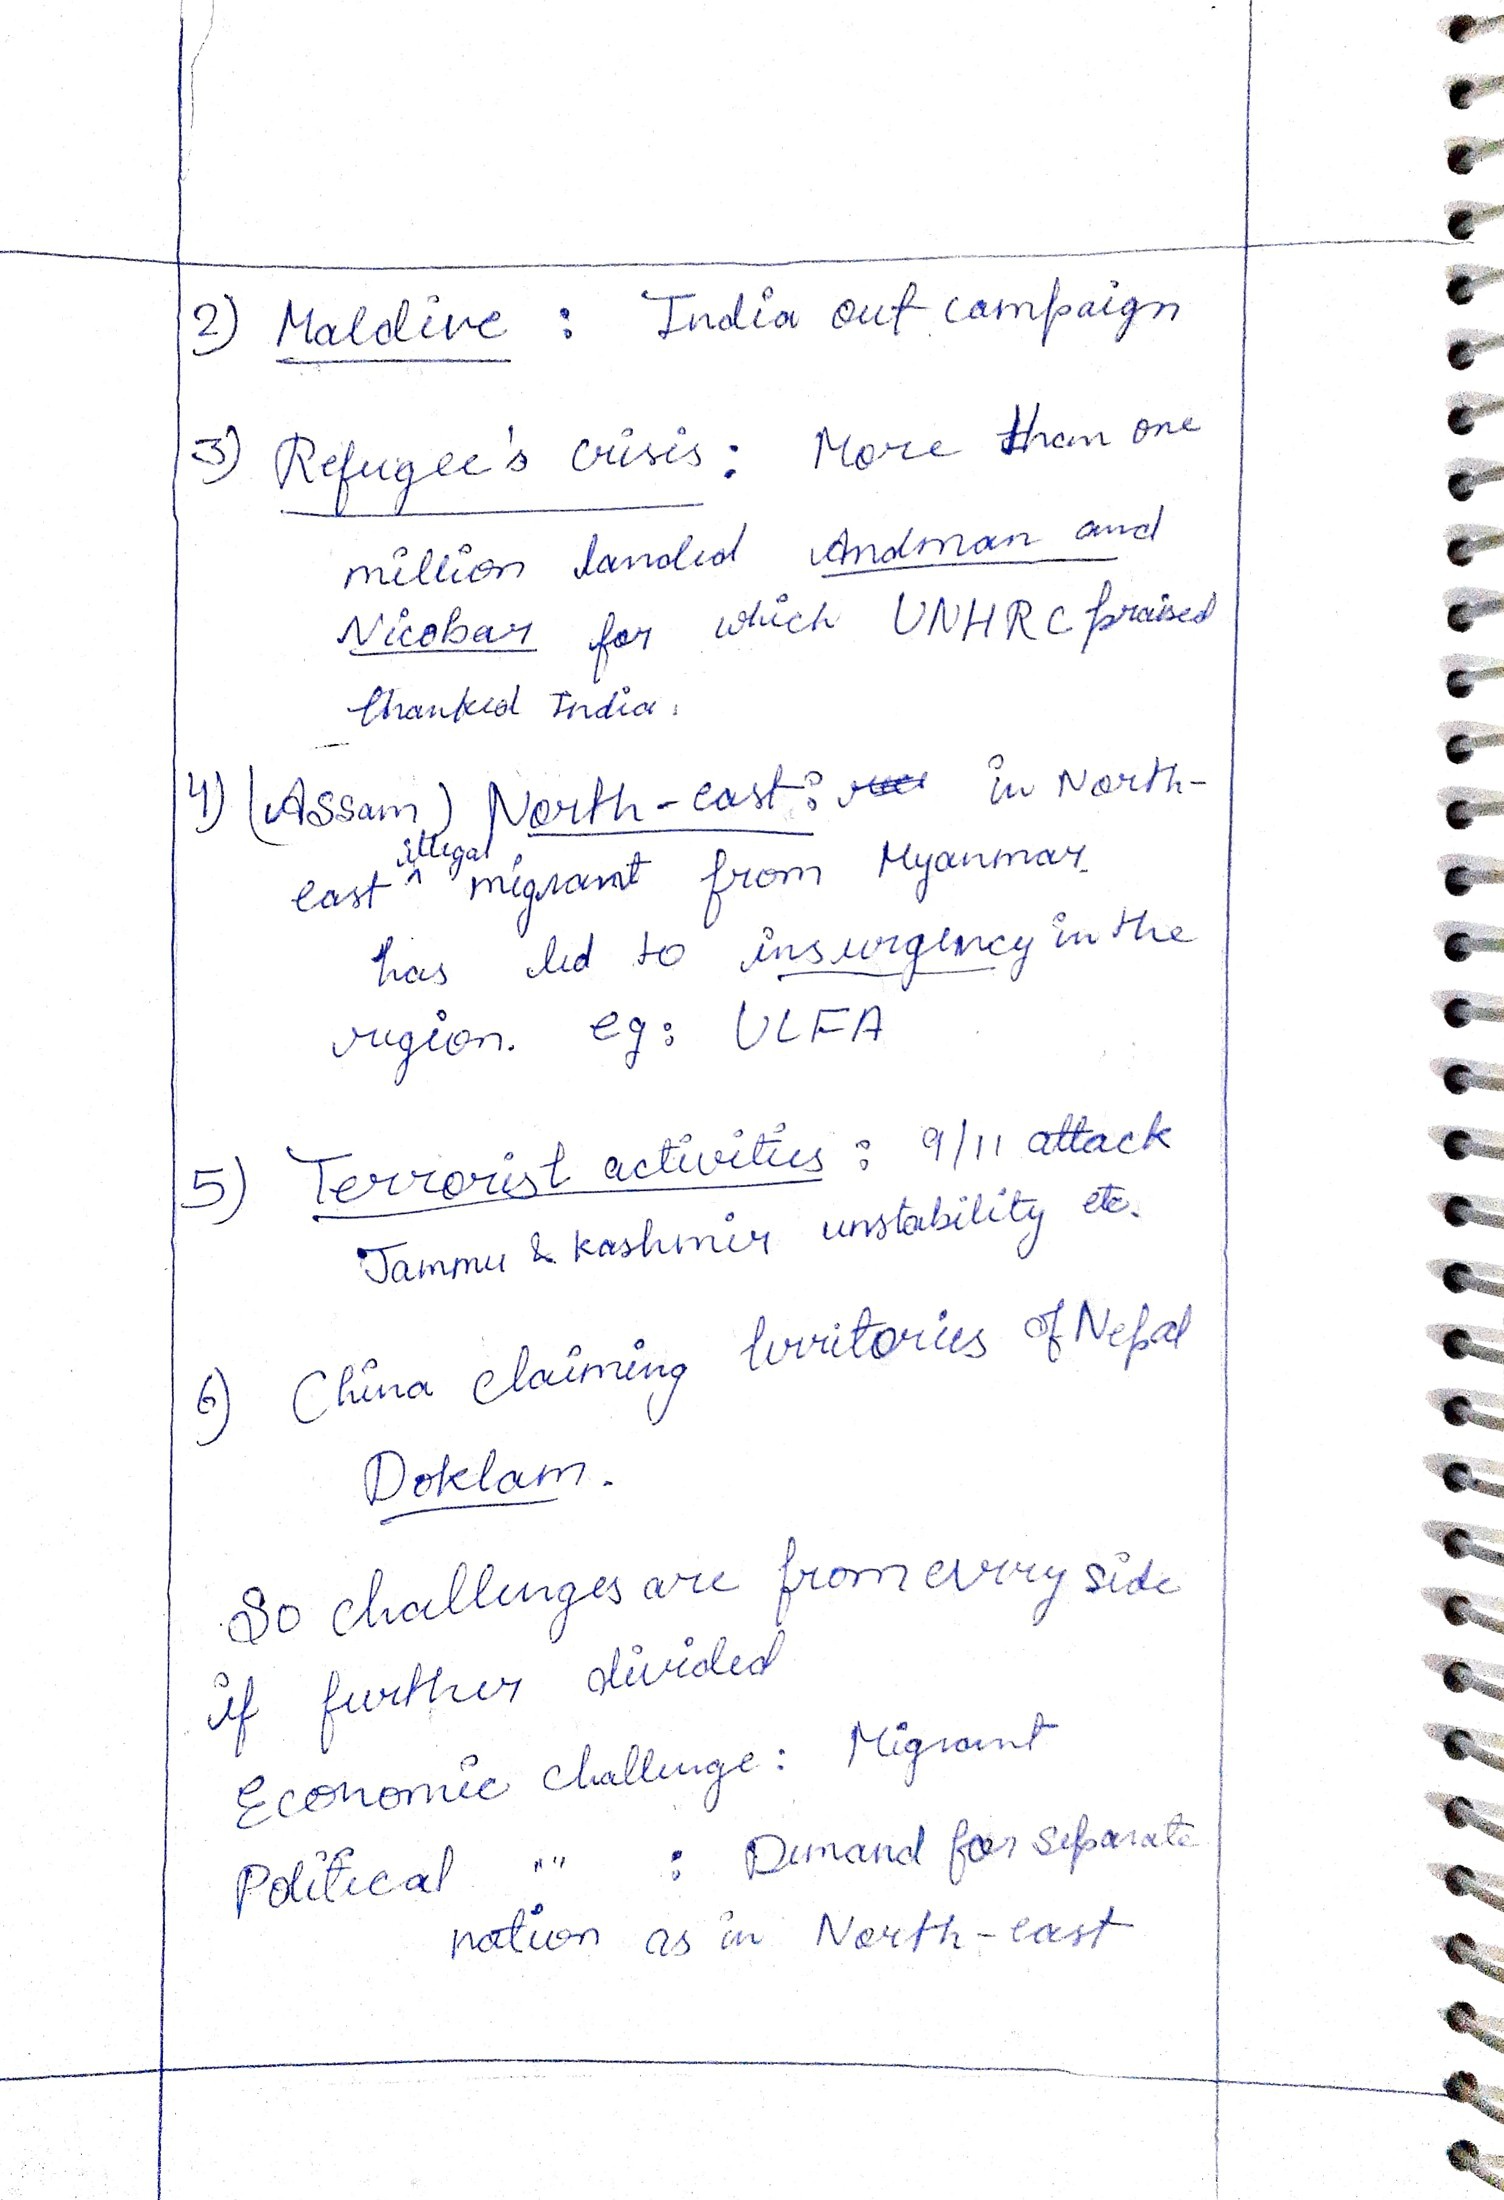 2) Maldive : India out campaign
3) Refugee's crisis : More than one
million landed Andman and
Nicobar for which UNHRC praised
thanked India.
4) (Assam) North-east : in North-
east illegal migrant from Myanmar
has led to insurgency in the
region. eg: ULFA
5) Terrorist activities : 9/11 attack
Jammu & Kashmir unstability etc.
6) China claiming territories of Nepal
Doklam.
So challenges are from every side
if further divided
Economic challenge : Migrant
Political "" : Demand for separate
nation as in North-east